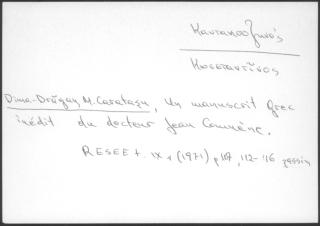 Καντακουζηνός
Κωσταντῖνος
Dima-Drăgan M. Caratașu, Un manuscrit grec
inédit du docteur Jean Comnène,
RESEE t. IX, (1971) p 112-116 passim